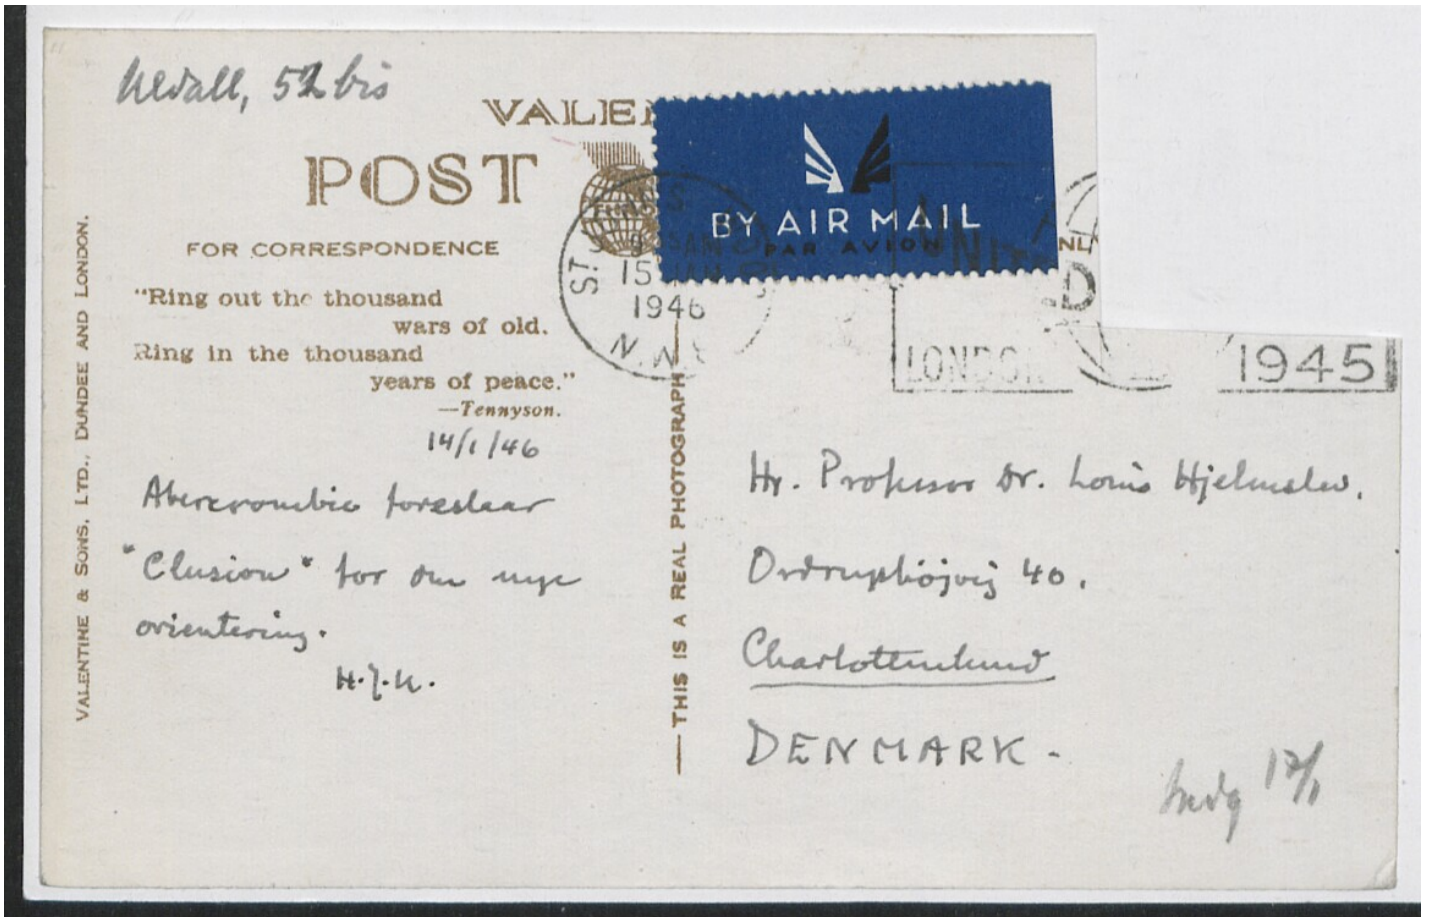 Uldall, 52 bis
VALE
POST
BY AIR MAIL
PAR AVION
FOR CORRESPONDENCE
"Ring out the thousand
wars of old.
Ring in the thousand
years of peace."
—Tennyson.
14/1/46
Abercrombie foreslaar
"Clusion" for den nye
orientering.
H.J.U.
VALENTINE & SONS, LTD., DUNDEE AND LONDON.
THIS IS A REAL PHOTOGRAPH
ST
AM
15 JAN
1946
N.W.
NL
LONDON
1945
Hr. Professor Dr. Louis Hjelmslev.
Ordruphøjvej 40.
Charlottenlund
DENMARK -
Indg 17/1